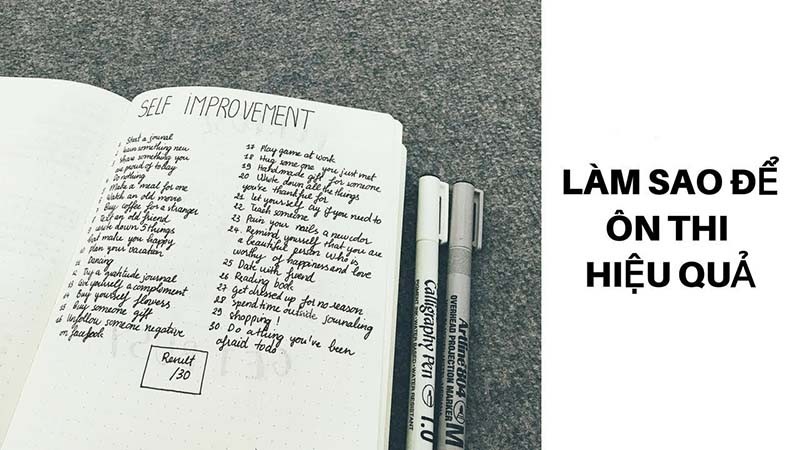 SELF IMPROVEMENT
1 Start a journal
2 Learn something new
3 Share something you
are proud of today
4 Do nothing
5 Make a meal for one
6 Watch an old move
7 Buy coffee for a stranger
8 an old friend
9 write down 5 things
that make you happy
10 plan your vacation
11 Dancing
12 Try a gratitude journal
13 Give yourself a complement
14 Buy yourself flowers
15 Buy someone gift
16 Unfollow someone negative
on facebook
Result
/30
17 Play game at work
18 Hug some one you just met
19 Handmade gift for someone
20 Wrote down all the things
you're thankful for
21 let yourself cry if you need to
22 Teach someone
23 Pain your nails a new color
24. Remind yourself that you are
a beautiful person who is
worthy of happiness and love
25 Date with friend
26 Reading book
27 get dressed up for no season
28 Spend time outside journaling
29 shopping!
30 Do a thing you've been
afraid to do
Calligraphy Pen 1.0
Artline 804 M
OVERHEAD PROJECTION MARKER
LÀM SAO ĐỂ
ÔN THI
HIỆU QUẢ